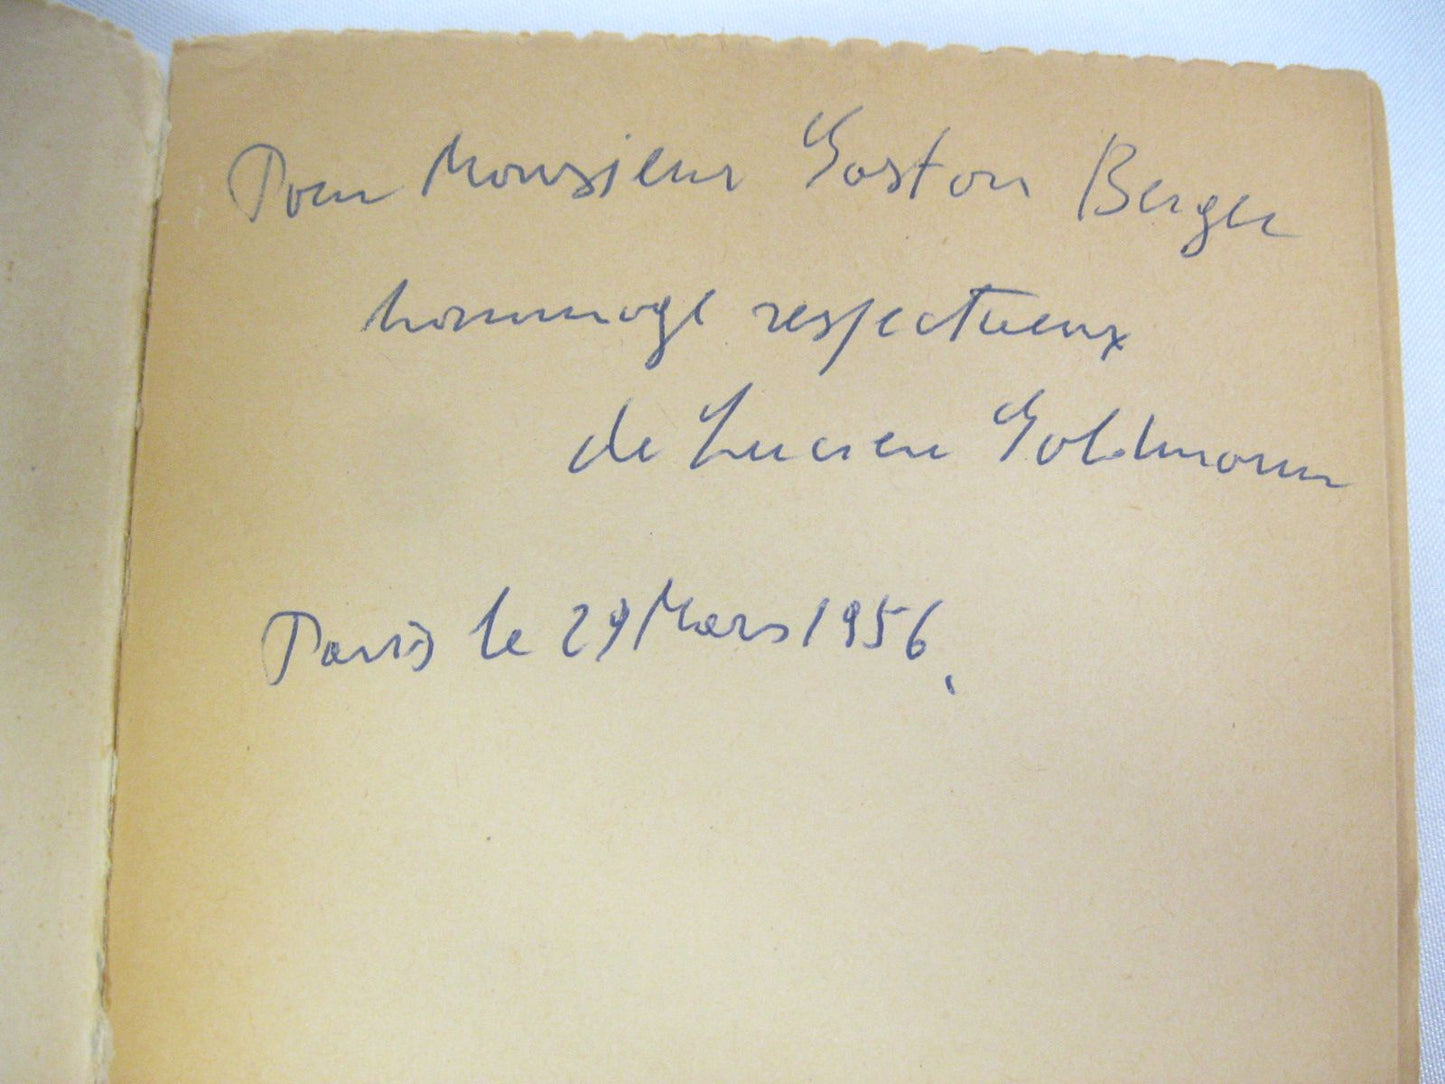 Pour Monsieur Gaston Berger
hommage respectueux
de Lucien Goldmann
Paris le 29 Mars 1956.